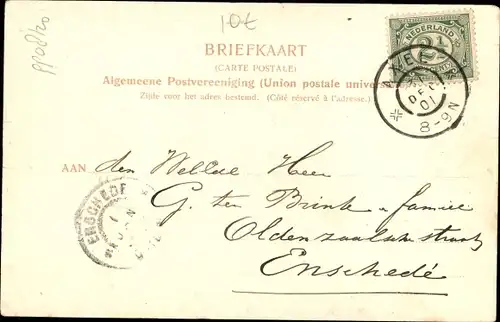 10t
PP08/20
NEDERLAND
2½
BRIEFKAART
(CARTE POSTALE)
Algemeene Postvereeniging (Union postale universelle)
Zijde voor het adres bestemd. (Côté réservé à l'adresse.)
DEC
01
8-9N
AAN den Weledele Heer
G. ten Brink & familie
Oldenzaalschestraat
Enschedé
ENSCHEDE